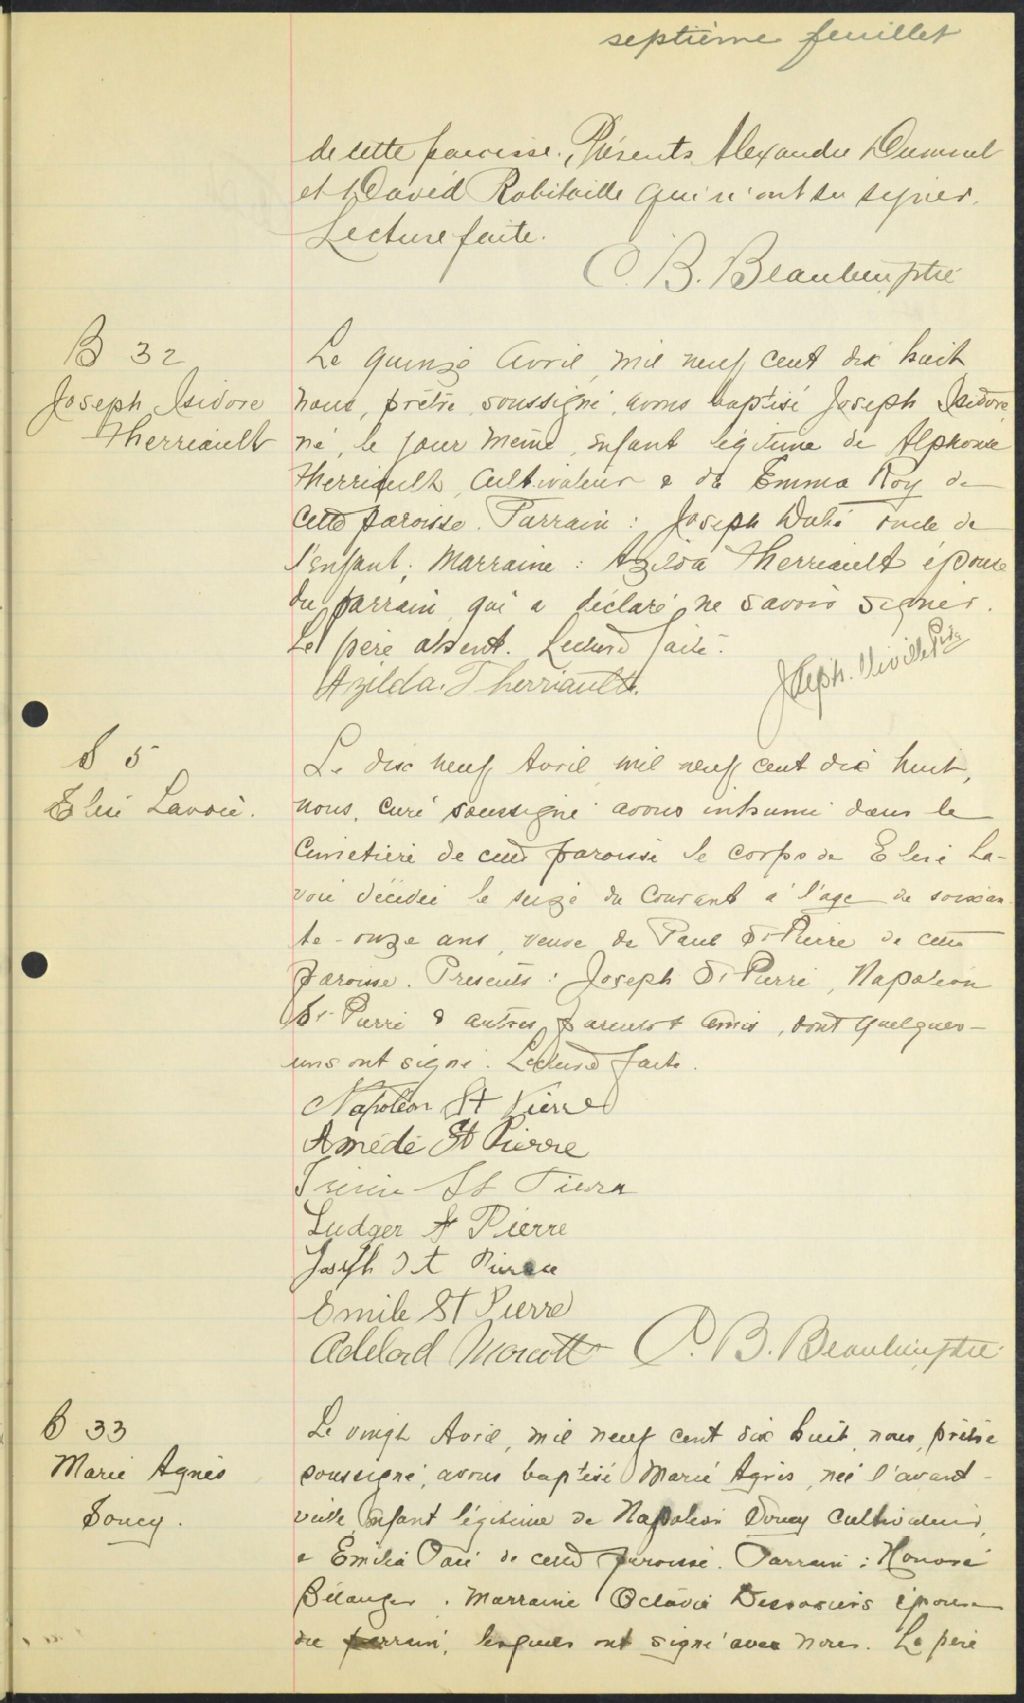 septième feuillet
de cette paroisse. Présents Alexandre Dumont
et David Robitaille qui n'ont su signer.
Lecture faite.
C. B. Beaulieu, ptre
B 32
Joseph Isidore
Therriault
Le quinze Avril, mil neuf cent dix huit
nous, prêtre soussigné, avons baptisé Joseph Isidore
né, le jour même, enfant légitime de Alphonse
Therriault, Cultivateur & de Emma Roy de
cette paroisse. Parrain : Joseph Dubé oncle de
l'enfant ; Marraine : Azilda Therriault épouse
du parrain qui a déclaré ne savoir signer.
Le père absent. Lecture faite.
Azilda. Therriault.
Joseph. Ptre
S 5
Elisé Lavoie.
Le dix neuf Avril mil neuf cent dix huit,
nous, curé soussigné avons inhumé dans le
Cimetière de cette paroisse le corps de Elisé La-
voie décédée le seize du courant à l'age de soixan
te-onze ans, veuve de Paul St Pierre de cette
paroisse. Présents : Joseph St Pierre, Napoléon
St Pierre & autres parents & amis, dont quelques-
uns ont signé. Lecture faite.
Napoléon St Pierre
Amédé St Pierre
St Pierre
Ludger St Pierre
Joseph St Pierre
Emile St Pierre
Adelard Morcott
C. B. Beaulieu, ptre
B 33
Marie Agnès
Soucy.
Le vingt Avril, mil neuf cent dix huit, nous, prêtre
soussigné, avons baptisé Marie Agnès, née l'avant-
veille, enfant légitime de Napoléon Soucy Cultivateur,
& Emilia Paré de cette paroisse. Parrain : Honoré
Bélanger . Marraine Octavie Desrosiers épouse
du parrain, lesquels ont signé avec nous. Le père